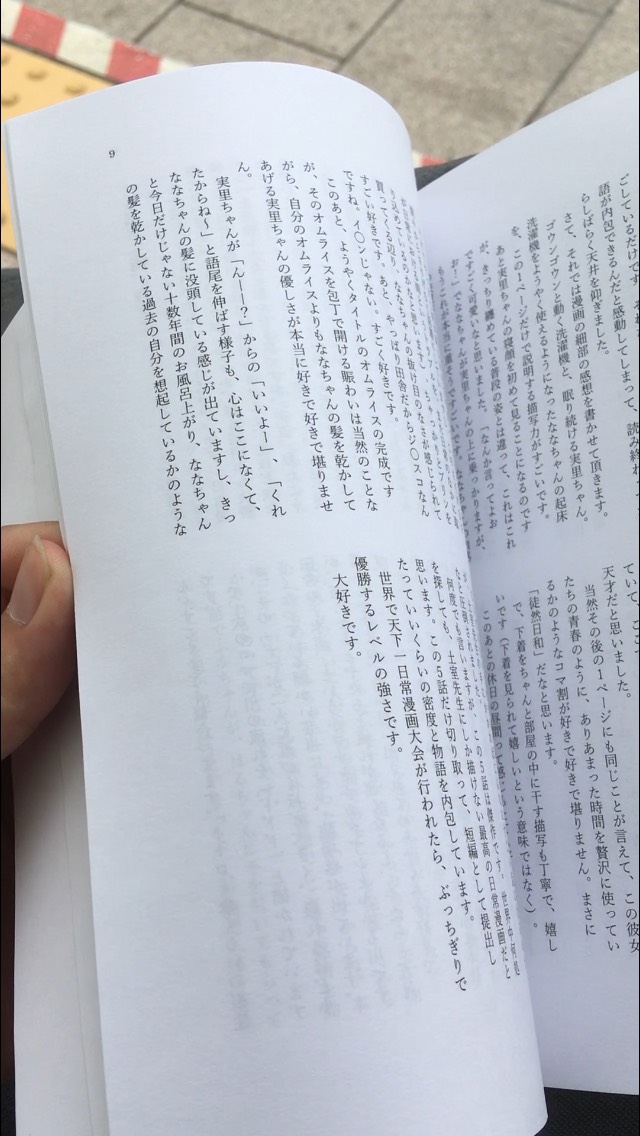 ごしているだけです。
語が内包できるんだと感動してしまって、読み終わ
らしばらく天井を仰ぎました。
さて、それでは漫画の細部の感想を書かせて頂きます。
ゴウンゴウンと動く洗濯機と、眠り続ける実里ちゃん。
洗濯機をようやく使えるようになったななちゃんの起床
を、この1ページだけで説明する描写力がすごいです。
あと実里ちゃんの寝顔を初めて見ることになるのです
が、きっちり纏めている普段の姿とは違って、これはこれ
ですごく可愛いなと思いました。「なんか言ってよお
お！」でななちゃんが実里ちゃんの上に乗っかりますが、
ていて、
天才だと思いました。
当然その後の1ページにも同じことが言えて、この彼女
たちの青春のように、ありあまった時間を贅沢に使ってい
るかのようなコマ割が好きで好きで堪りません。まさに
「徒然日和」だなと思います。
で、下着をちゃんと部屋の中に干す描写も丁寧で、嬉し
いです（下着を見られて嬉しいという意味ではなく）。
このあとの休日の昼間って感じ
買ってくる辺り、ななちゃんの抜け目のなさが感じられて
すごい好きです。あと、やっぱり田舎だからジ〇スコなん
ですね。イ〇ンじゃない。すごく好きです。
このあと、ようやくタイトルのオムライスの完成です
が、そのオムライスを包丁で開ける賑わいは当然のことな
がら、自分のオムライスよりもななちゃんの髪を乾かして
あげる実里ちゃんの優しさが本当に好きで好きで堪りませ
ん。
実里ちゃんが「んーー？」からの「いいよー」、「くれ
たからね～」と語尾を伸ばす様子も、心はここになくて、
ななちゃんの髪に没頭している感じが出ていますし、きっ
と今日だけじゃない十数年間のお風呂上がり、ななちゃん
の髪を乾かしている過去の自分を想起しているかのような
何度でも言いますが、この5話は傑作です。世界中何処
を探しても、土室先生にしか描けない最高の日常漫画だと
思います。この5話だけ切り取って、短編として提出し
たっていいくらいの密度と物語を内包しています。
世界で天下一日常漫画大会が行われたら、ぶっちぎりで
優勝するレベルの強さです。
大好きです。
9